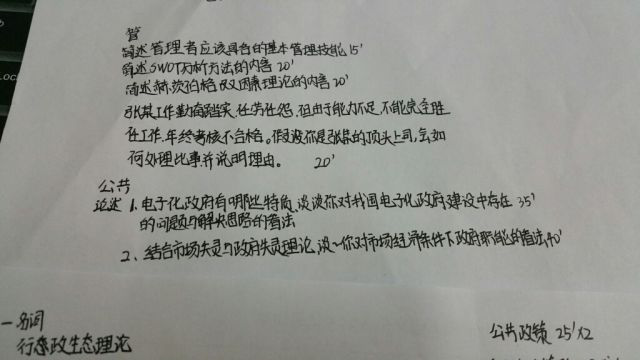 管
简述管理者应该具备的基本管理技能 15'
简述SWOT分析方法的内容 20'
简述赫茨伯格双因素理论的内容 20'
张某工作勤奋踏实、任劳任怨,但由于能力不足,不能完全胜
任工作,年终考核不合格。假设你是张某的顶头上司,会如
何处理此事并说明理由。 20'
公共
论述 1、电子化政府有哪些特质,谈谈你对我国电子化政府建设中存在 35'
的问题与解决思路的看法
2、结合市场失灵与政府失灵理论,谈~你对市场经济条件下政府职能的看法,40'
一名词
行政生态理论
公共政策 25'×2